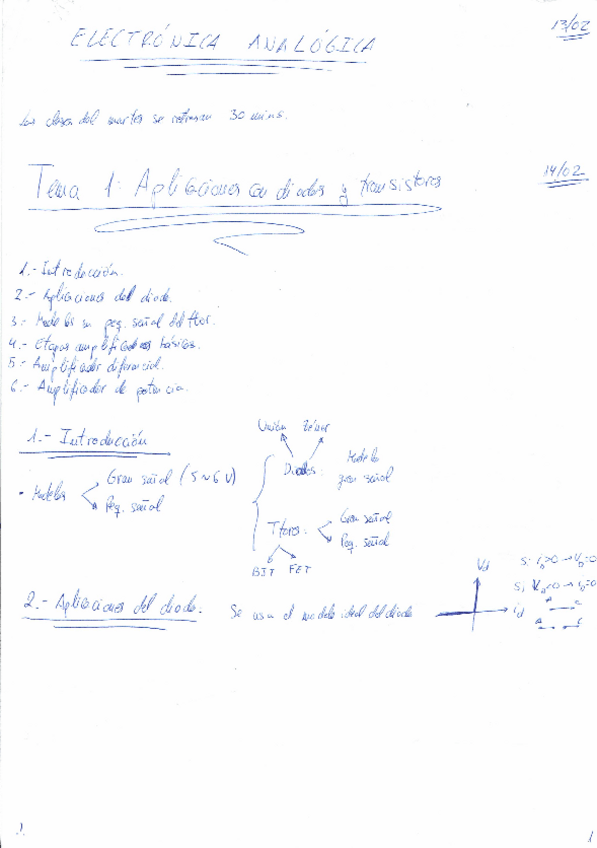 13/02
ELECTRÓNICA ANALÓGICA
Las clases del martes se retrasan 30 mins.
14/02
Tema 1: Aplicaciones con diodos y transistores
1.- Introducción.
2.- Aplicaciones del diodo.
3.- Modelos en peq. señal del ttor.
4.- Etapas amplificadoras básicas.
5.- Amplificador diferencial.
6.- Amplificador de potencia.
1.- Introducción
- Modelos
Gran señal (5~6 V)
Peq. señal
Unión Zéner
Diodos:
Modelo
gran señal
Ttores:
Gran señal
Peq. señal
BJT FET
2.- Aplicaciones del diodo.
Se usa el modelo ideal del diodo
Vd
id
Si iD>0 → VD=0
Si VD<0 → iD=0
a c
a c
1